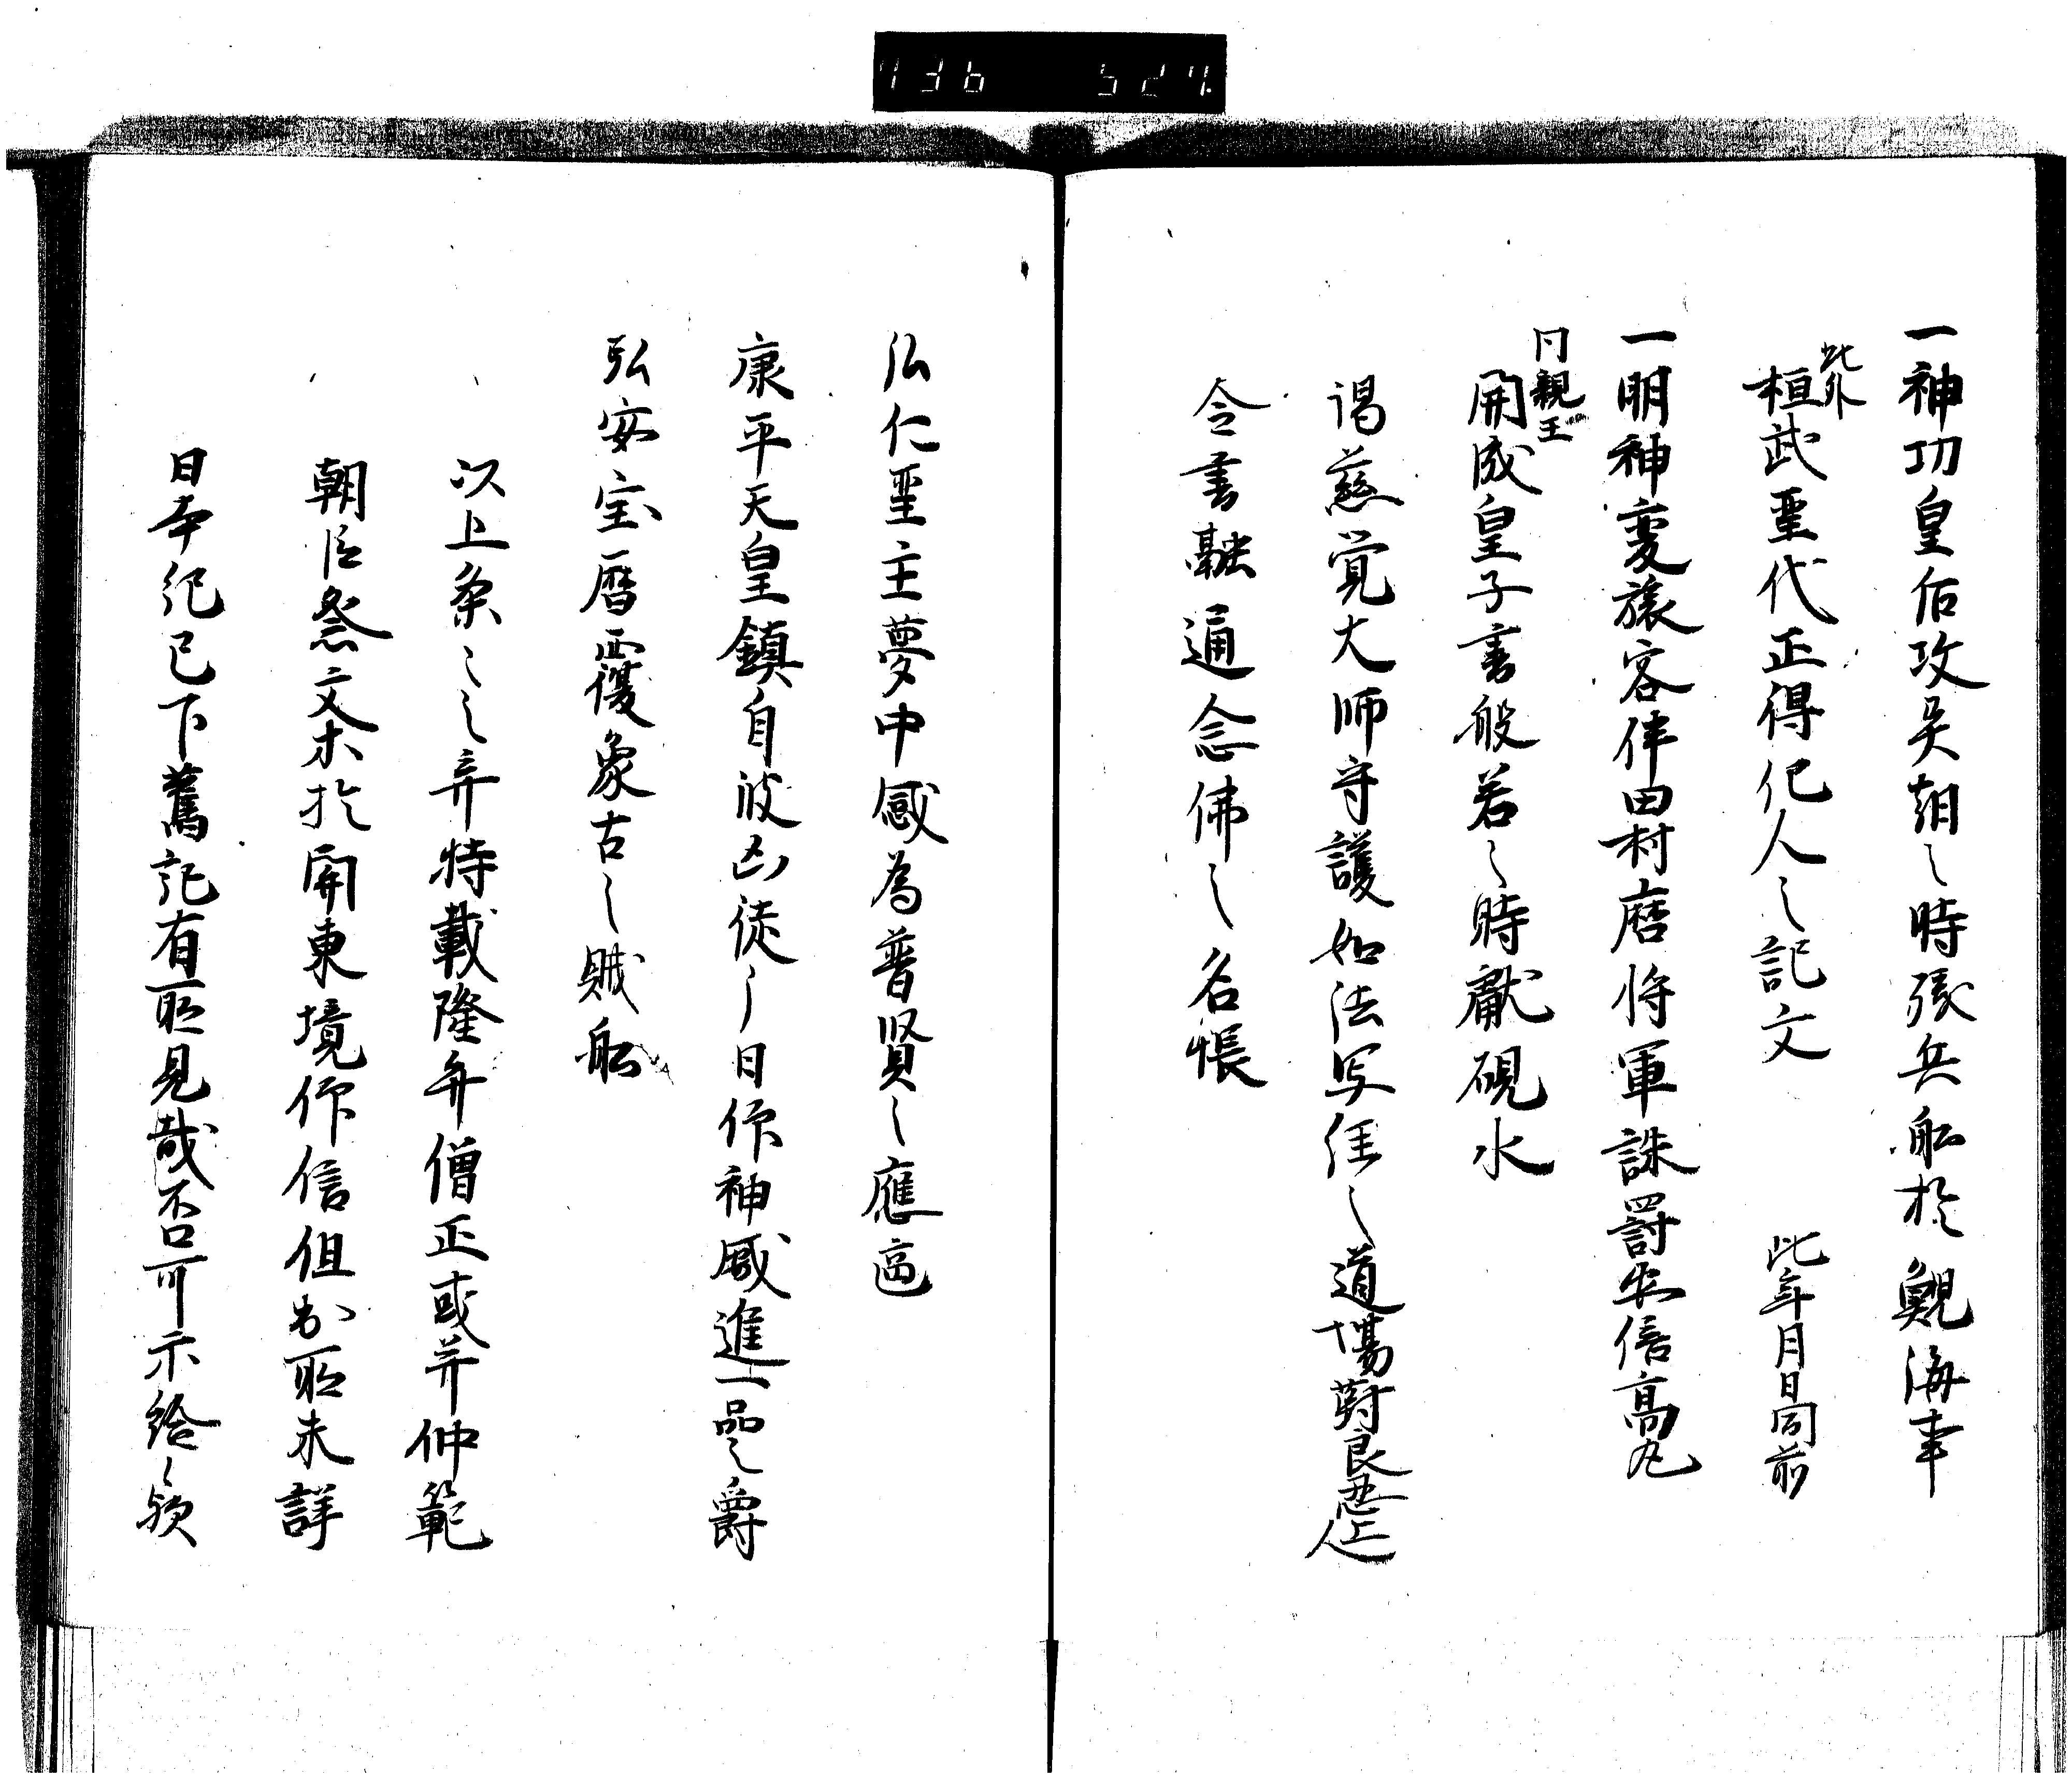 436 524
一神功皇后攻吴朝之時張兵舩於鯢海事
此外
桓武聖代正得化人之記文　此年月日同前
一明神変旅客伴田村麿将軍誅罸安倍高丸
同親王
開成皇子書般若之時獻硯水
謁慈覚大師守護如法写経之道場對良忍上人
令書融通念佛之名帳
弘仁聖主夢中感為普賢之應
康平天皇鎮自彼凶徒之日作神威進一品之爵
弘安宝暦覆蒙古之賊舩
以上条々之弁特載隆弁僧正或并仲範
朝臣祭文末於関東境仰信但於所未詳
日本紀已下舊記有所見哉否可示給之須